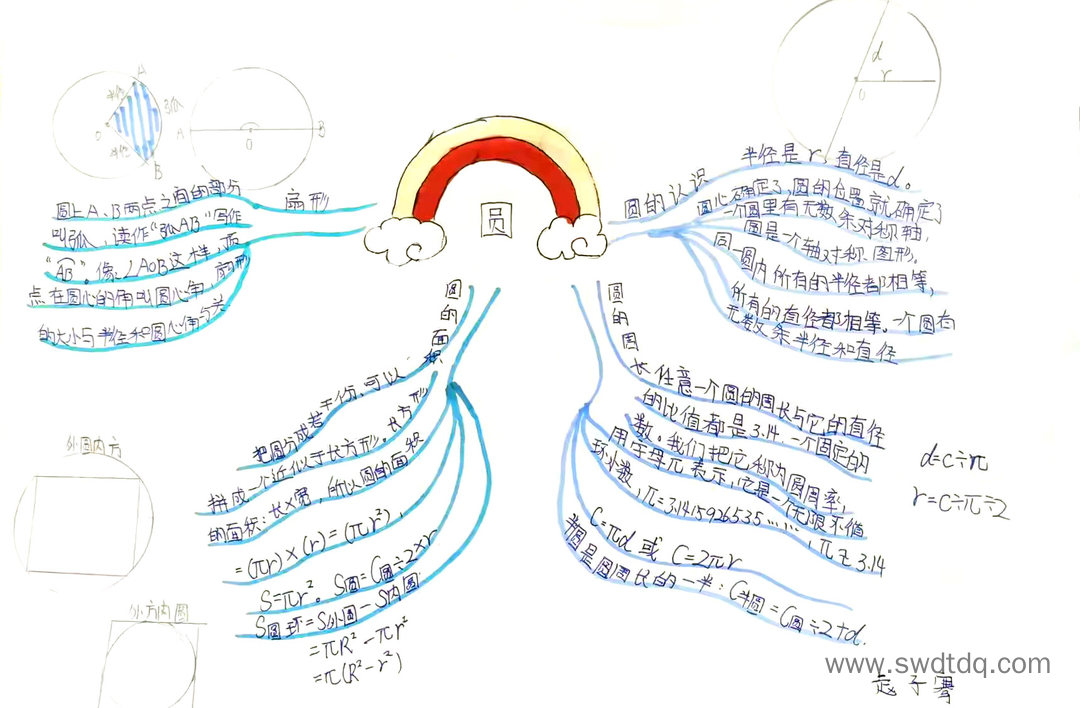 圆
扇形
圆上A、B两点之间的部分
叫弧,读作“弧AB”写作
“AB”。像∠AOB这样,顶
点在圆心的角叫圆心角,扇形
的大小与半径和圆心角有关.
A
半径
弧
O
半径
B
A
O
B
圆的认识
半径是r 直径是d。
圆心确定了,圆的位置就确定了
一个圆里有无数条对称轴,
圆是一个轴对称图形,
同一圆内所有的半径都相等,
所有的直径都相等。一个圆有
无数条半径和直径
d
r
O
圆的面积
把圆分成若干份,可以
拼成一个近似于长方形.长方形
的面积:长×宽,所以圆的面积
=(πr)×(r)=(πr²),
S=πr²。S圆=C圆÷2×r
S圆环=S外圆-S内圆
=πR²-πr²
=π(R²-r²)
外圆内方
外方内圆
圆的周长
任意一个圆的周长与它的直径
的比值都是3.14.一个固定的
数。我们把它称为圆周率,
用字母π表示,它是一个无限不循
环小数,π=3.1415926535……,π≈3.14
C=πd或C=2πr
半圆是圆周长的一半:C半圆=C圆÷2+d.
d=c÷π
r=c÷π÷2
www.swdtdq.com